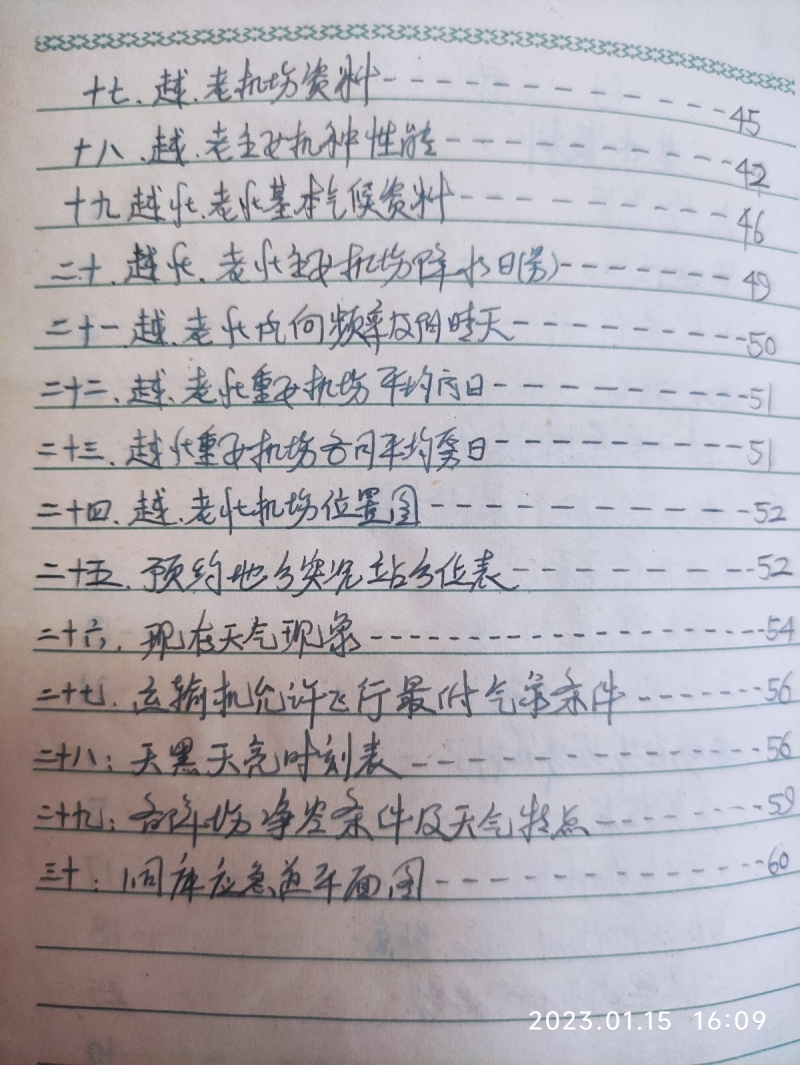 十七、越、老机场资料----------45
十八、越、老主要机种性能----------42
十九、越北、老北基本气候资料----------46
二十、越北、老北主要机场降水日(雾)----------49
二十一、越、老北风向频率及阴晴天----------50
二十二、越、老北重要机场平均雨日----------51
二十三、越北重要机场各月平均雾日----------51
二十四、越、老北机场位置图----------52
二十五、预约地分实况站分位表----------52
二十六、现在天气现象----------54
二十七、运输机允许飞行最低气象条件------56
二十八：天黑天亮时刻表----------56
二十九：各降场净空条件及天气特点------59
三十：洞库应急道平面图----------60
2023.01.15 16:09